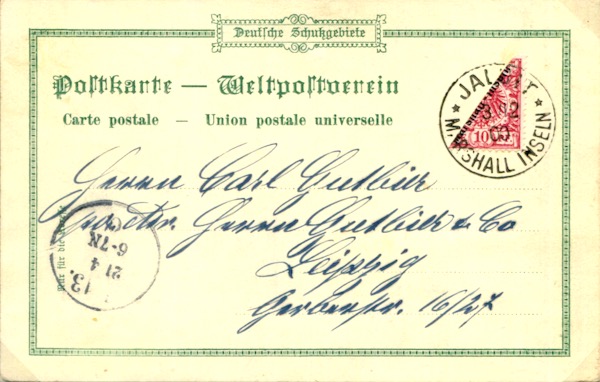 Deutsche Schutzgebiete
Postkarte — Weltpostverein
Carte postale — Union postale universelle
JALUIT
MARSHALL INSELN
10
Herrn Carl Gutbier
Herrn Gutbier & Co
Leipzig
Gerberstr. 16/27
Nur für die
13.
21 4
6-7N